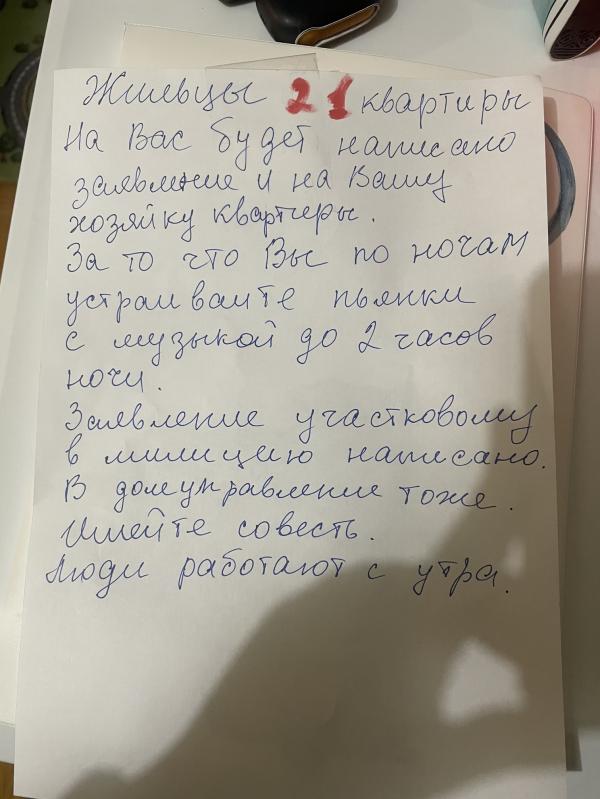 Жильцы 21 квартиры
На Вас будет написано
заявление и на Вашу
хозяйку квартиры.
За то что Вы по ночам
устраиваите пьянки
с музыкой до 2 часов
ночи.
Заявление участковому
в милицию написано.
В домуправление тоже.
Имейте совесть.
Люди работают с утра.